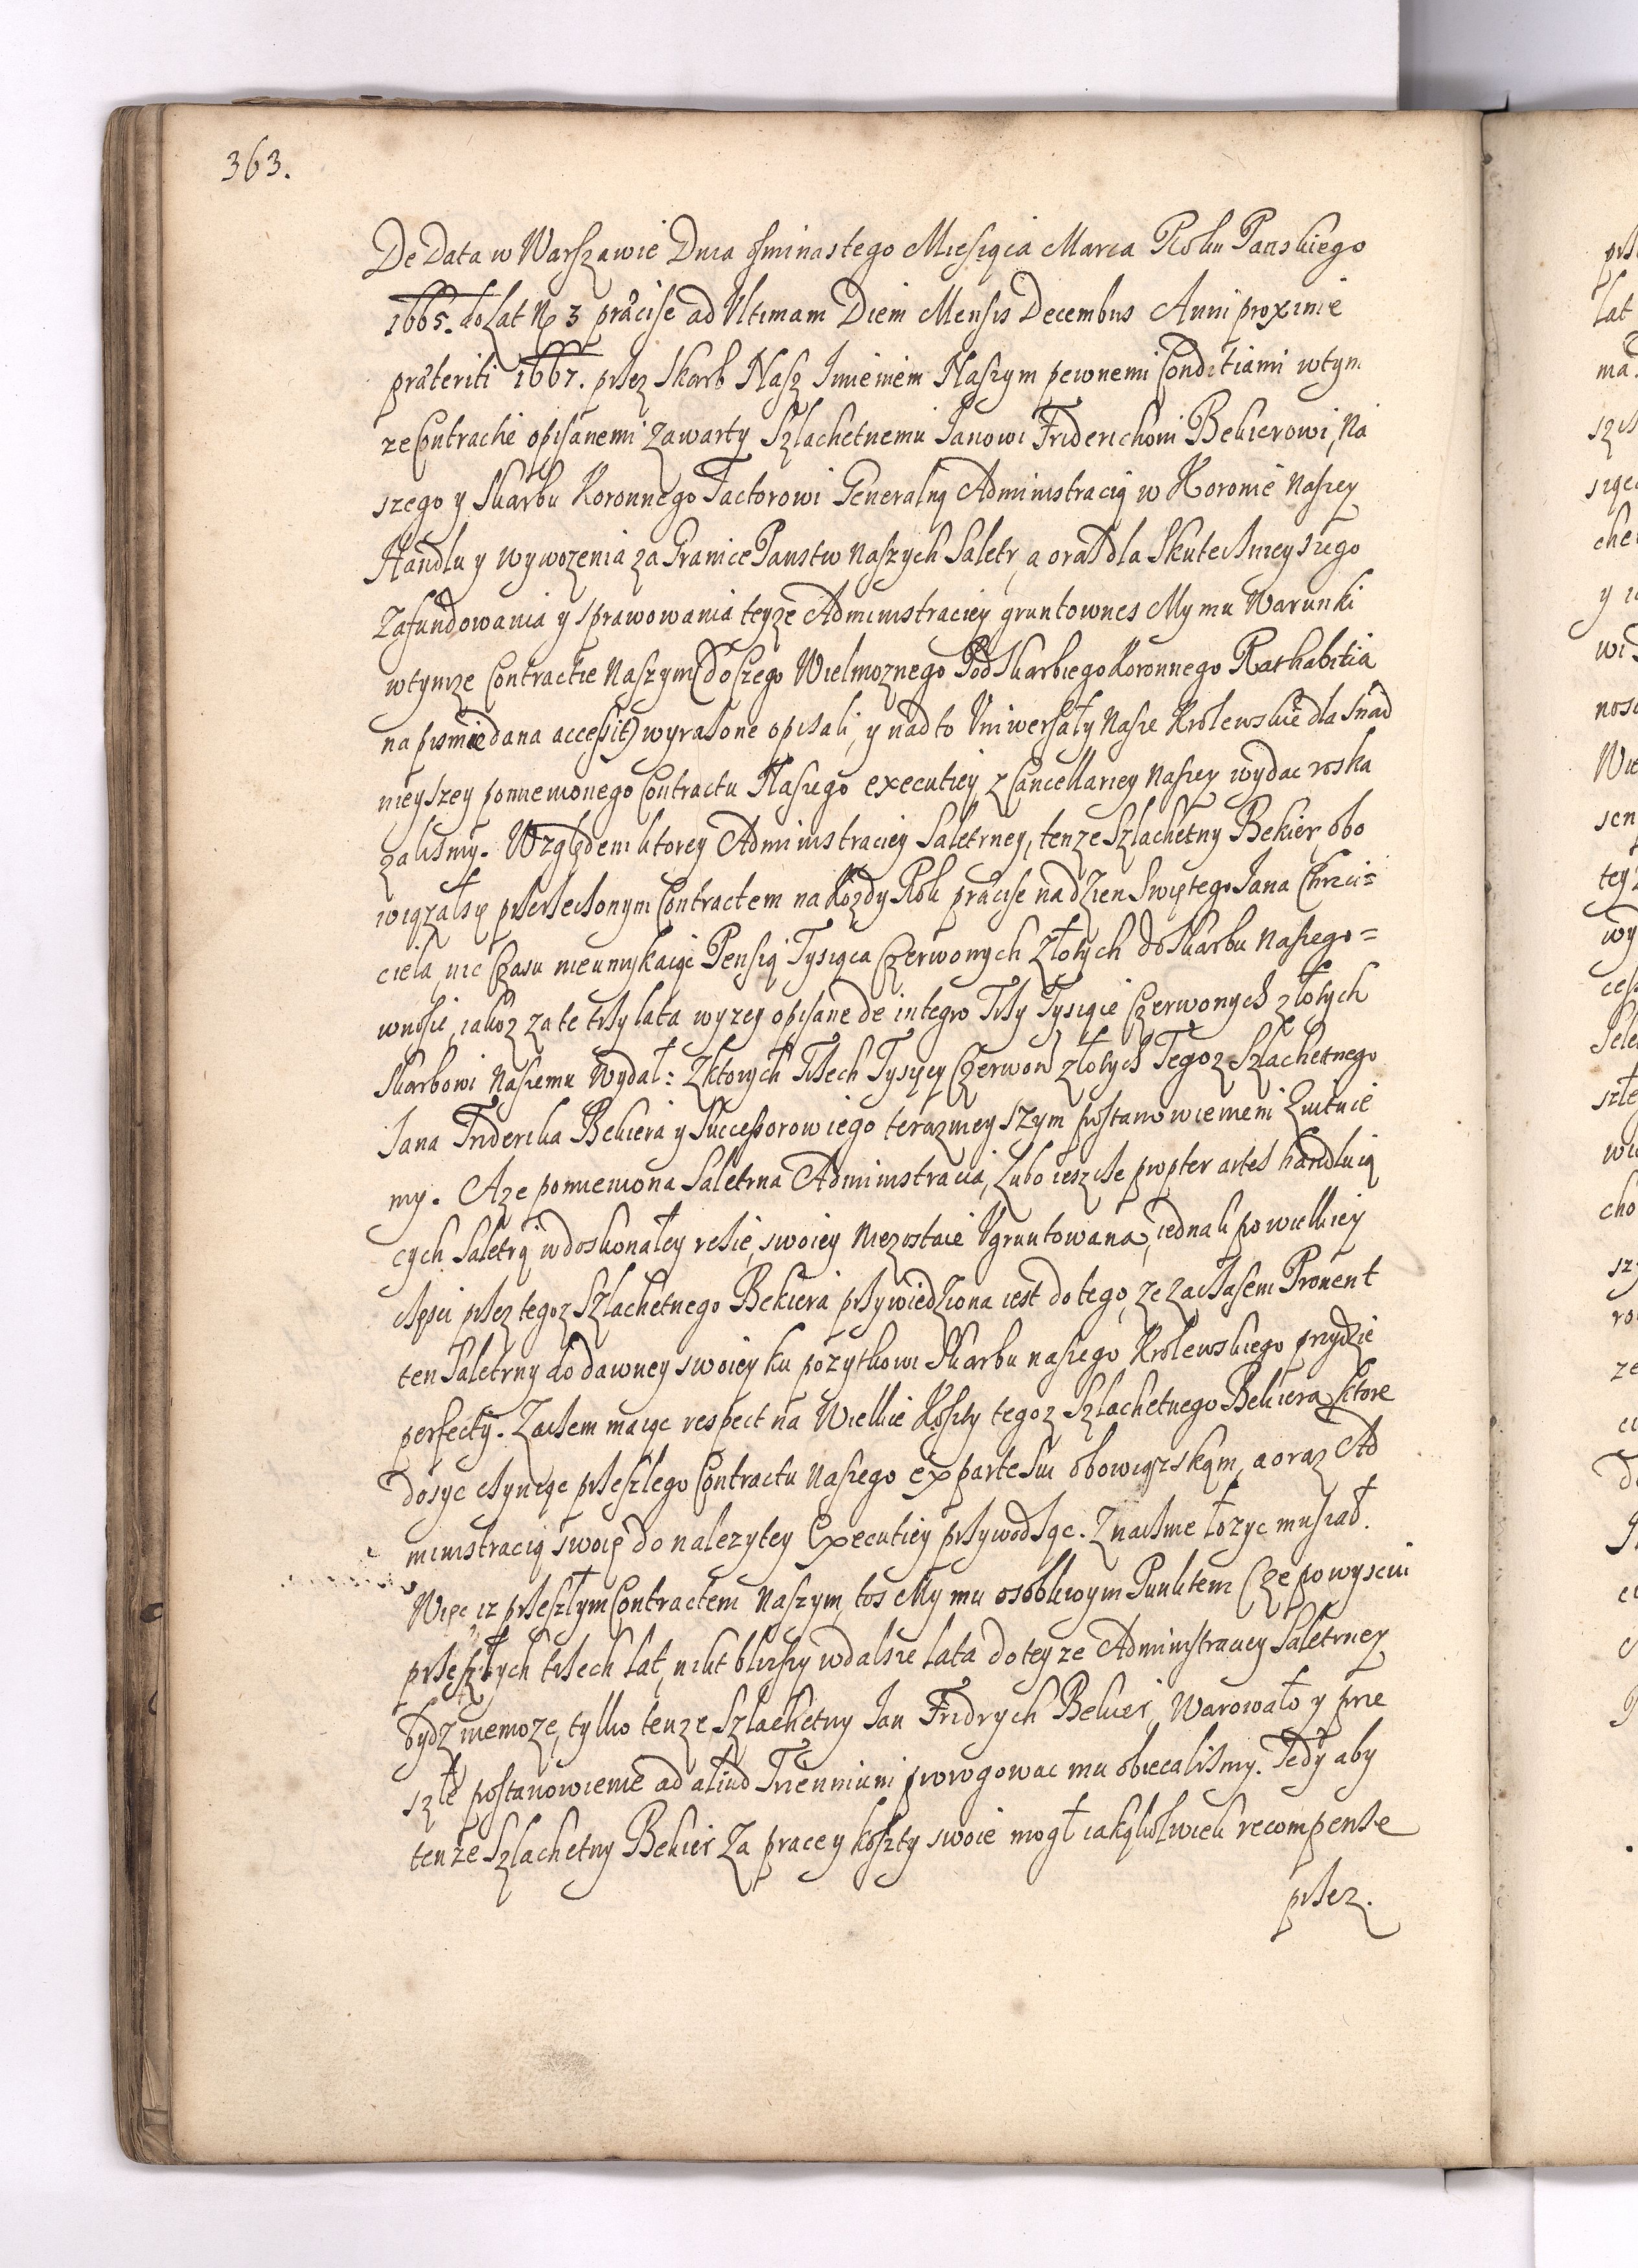 363.
De Data w Warszawie Dnia osminastego Miesiąca Marca Roku Panskiego
1665. do lat No 3 præcise ad Ultimam Diem Mensis Decembris Anni proxime
præteriti 1667. przez Skarb Nasz Imieniem Naszym pewnemi Conditiami w tym
ze Contracie opisanemi zawarty Szlachetnemu Janowi Friderichowi Bekierowi, Na
szego y Skarbu Koronnego Factorowi Generalną Administracią w Koronie Naszey
Handlu y wywozenia za Granice Panstw Naszych Saletr, a oraz dla Skutecznieyszego
Zafundowania y sprawowania teyze Administraciey gruntownes My mu Warunki
w tymze Contractie Naszym (do czego Wielmoznego Podskarbiego Koronnego Rathabitia
na pismie dana accessit) wyrazone opisali, y nad to Uniwersały Nasze Krolewskie dla snad
nieyszey pomienionego Contractu Naszego executiey z Cancellariey Naszey wydac roska
zalismy. Względem ktorey Administraciey Saletrney, tenze Szlachetny Bekier obo
wiązał się przerzeczonym Contractem na kozdy Rok præcise na dzien Swiętego Jana Chrzci=
ciela nic czasu nieumykaiąc Pensią Tysiąca Czerwonych Złotych do Skarbu Naszego=
wnosic, iakoz za te trzy lata wyzey opisane de integro Trzy Tysiące Czerwonych złotych
Skarbowi Naszemu wydał: Z ktorych Trzech Tysięcy Czerwon złotych Tegoz Szlachetnego
Jana Friderika Bekiera y Successorow iego teraznieyszym postanowieniem kwituie
my. A ze pomieniona Saletrna Administracia, Lubo ieszcze propter artes handluią
cych Saletrą w doskonałey reszie swoiey niezostaie Ugruntowana, iednak po wielkiey
części przez tegoz Szlachetnego Bekiera przywiedziona iest do tego, ze za czasem Prouent
ten Saletrny do dawney swoiey ku pozytkowi Skarbu naszego Krolewskiego przydzie
perfecty. Zaczem maiąc respect na Wielkie Koszty tegoz Szlachetnego Bekiera, ktore
dosyc czyniąc przeszlego Contractu Naszego ex parte sui obowiązkom, a oraz Ad
ministracią swoię do nalezytey Executiey przywodząc. Znaczne łozyc musiał.
Więc iz przeszłym Contractem Naszym, tos My mu osobliwym Punktem (ze po wysciu
przeszłych trzech lat, nikt blizszy w dalsze lata do teyze Administraciey Saletrney
bydz niemoze, tylko tenze Szlachetny Jan Fridrych Bekier, Warowało y prze
szłe postanowienie ad aliud Triennium prorogowac mu obiecalismy. Tedy aby
tenze Szlachetny Bekier za prace y koszty swoie mogł iakąkolwiek recompense
przez.